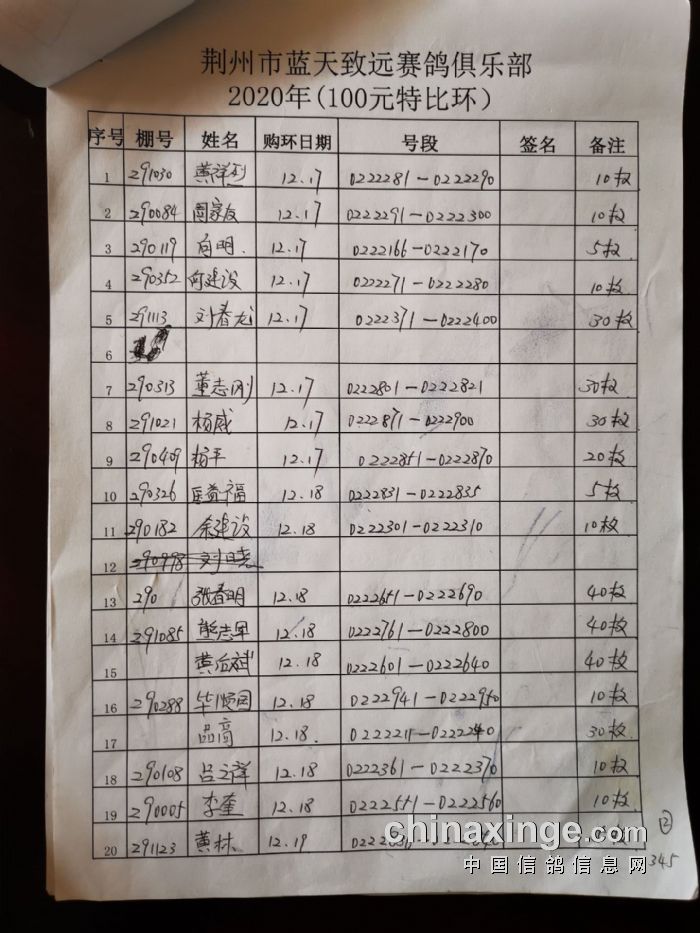 荆州市蓝天致远赛鸽俱乐部
2020年(100元特比环)
序号 棚号 姓名 购环日期 号段 签名 备注
1 291030 黄祥烈 12.17 0222281-0222290 10枚
2 290084 阎家友 12.17 0222291-0222300 10枚
3 290119 向明. 12.17 0222166-0222170 5枚
4 290352 向建设 12.17 0222271-0222280 10枚
5 291113 刘春龙 12.17 0222371-0222400 30枚
6
7 290313 董志刚 12.17 0222801-0222821 30枚
8 291021 杨威 12.17 0222871-0222900 30枚
9 290409 杨平 12.17 0222851-0222870 20枚
10 290326 福 12.18 0222831-0222835 5枚
11 290182 余建设 12.18 0222301-0222310 10枚
12 290998 刘日亮
13 290 张春明 12.18 0222651-0222690 40枚
14 291085 熊志军 12.18 0222761-0222800 40枚
15 黄治斌 12.18 0222601-0222640 40枚
16 290288 毕顺国 12.18 0222941-0222950 10枚
17 品高 12.18. 0222211-0222240 30枚
18 290108 吕之祥 12.18 0222361-0222370 10枚
19 290005 李奎 12.18 0222551-0222560 10枚
20 291123 黄林 12.19 枚
②
345
chinaxinge.com
中国信鸽信息网